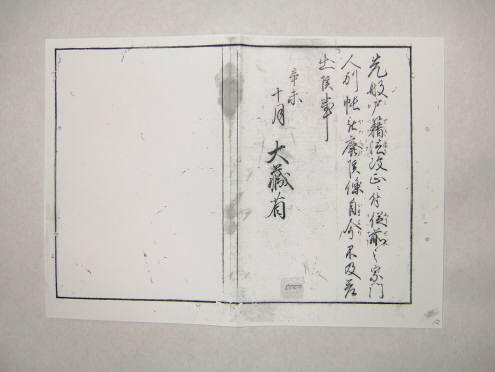 先般戸籍法改正ニ付從前之宗門
人別帳被廢候條自今不及差
出候事
辛未
十月
大藏省